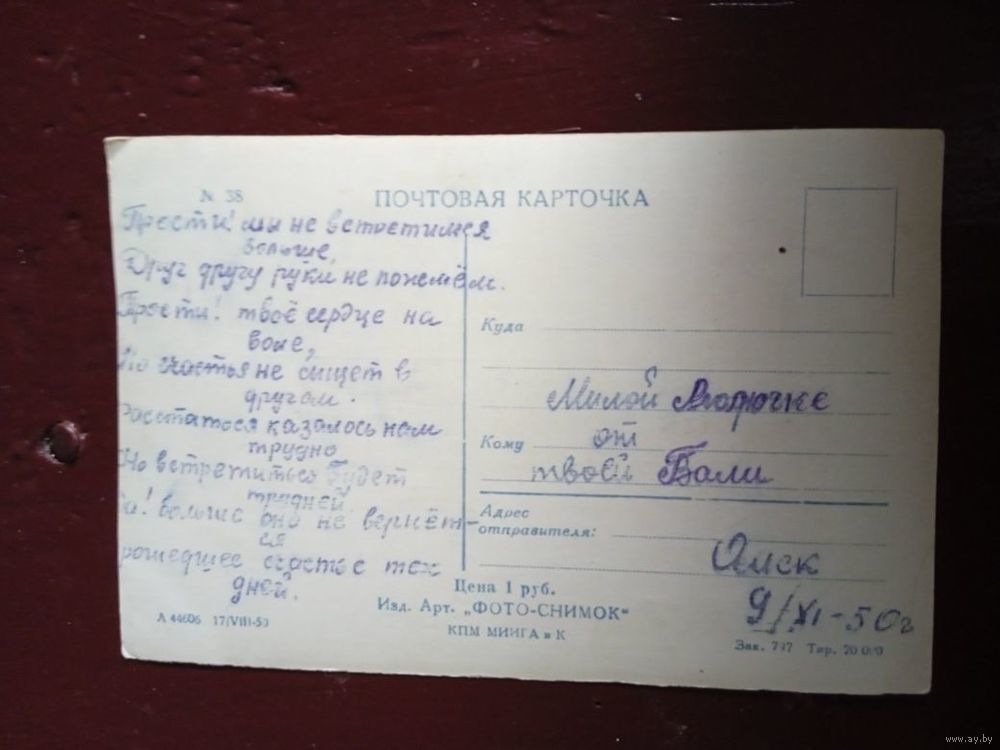 № 38
ПОЧТОВАЯ КАРТОЧКА
Прости! мы не встретимся
больше,
Друг другу руки не пожмём.
Прости! твоё сердце на
воле,
Но счастья не сыщет в
другом.
Расстаться казалось нам
трудно
Но встретиться будет
трудней.
Да! больше оно не вернёт-
ся
рошедшее счастье тех
дней.
Куда
Милой
Кому от
твоей Вали
Адрес
отправителя:
Омск
9/XI-50г
Цена 1 руб.
Изд. Арт. „ФОТО-СНИМОК"
КПМ МИИГА и К
А 44606 17/VIII-50
Зак. 797 Тир. 20 000
www.ay.by